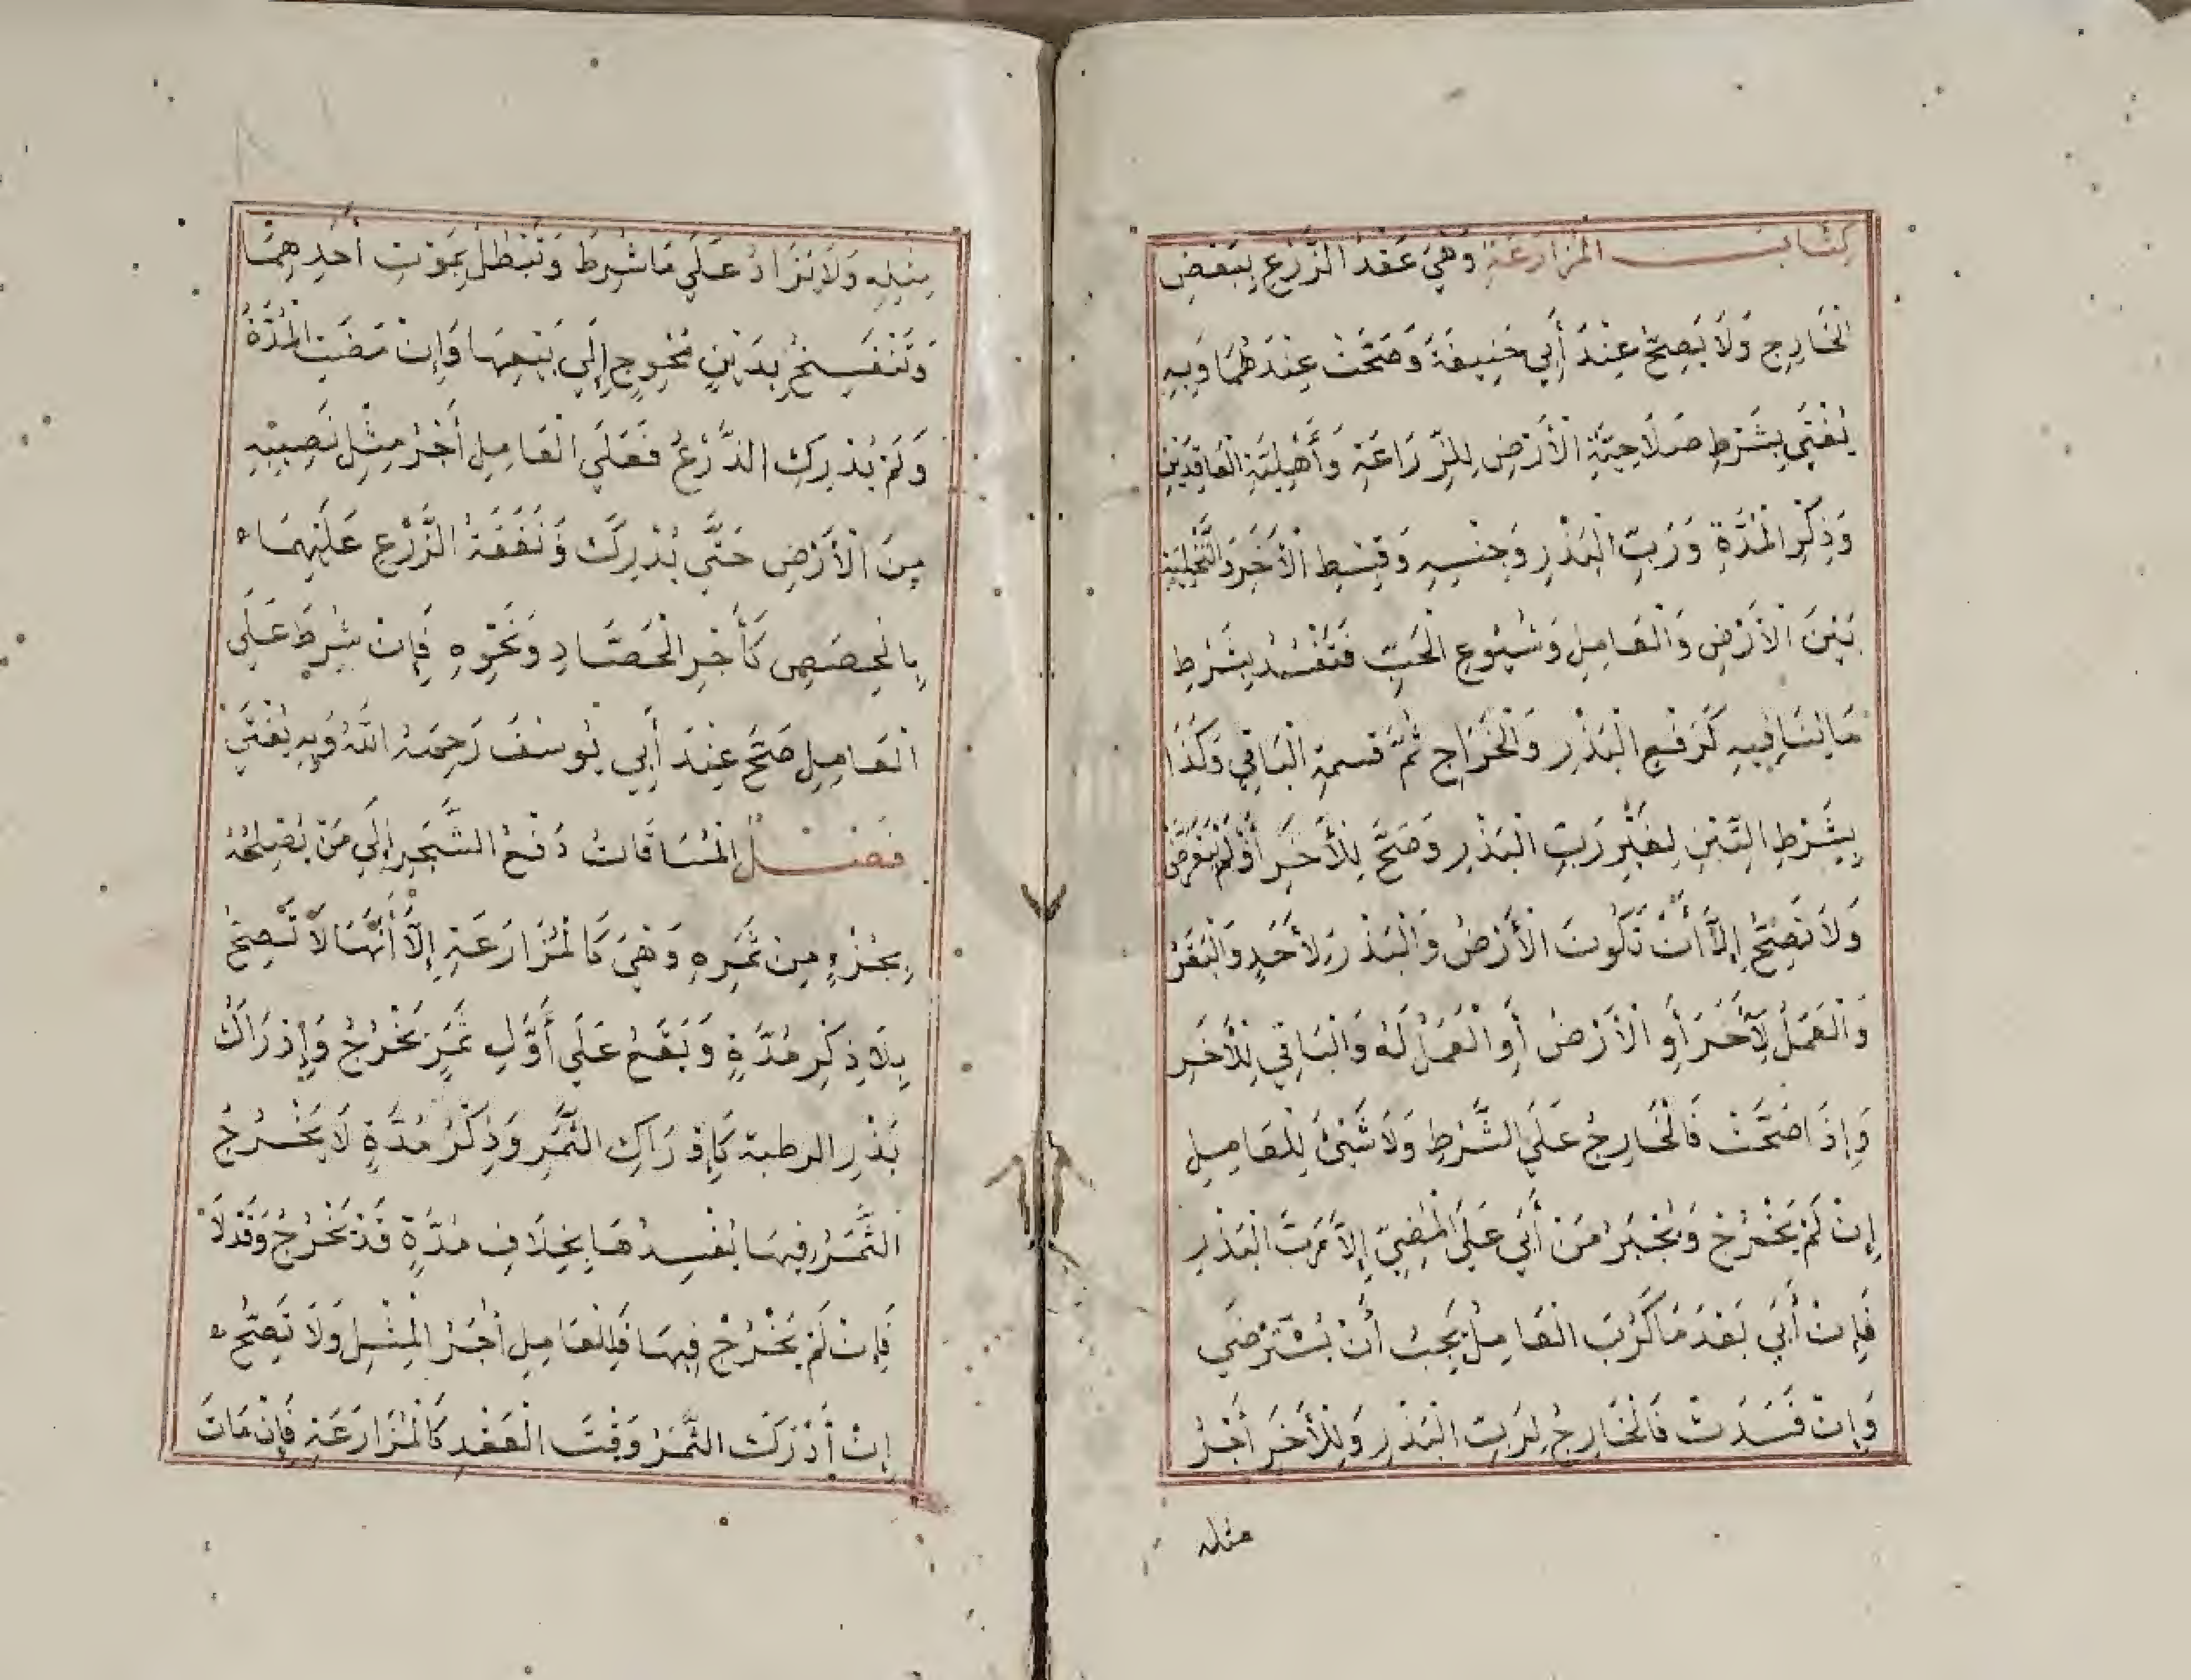 كِتَابُ الْمُزَارَعَةِ وَهِيَ عَقْدُ الزَّرْعِ بِبَعْضِ
الْخَارِجِ وَلَا يَصِحُّ عِنْدَ أَبِي حَنِيفَةَ وَصَحَّتْ عِنْدَهُمَا وَبِهِ
يُفْتَى بِشَرْطِ صَلَاحِيَّةِ الْأَرْضِ لِلزِّرَاعَةِ وَأَهْلِيَّةِ الْعَاقِدَيْنِ
وَذِكْرِ الْمُدَّةِ وَرَبِّ الْبَذْرِ وَجِنْسِهِ وَقِسْطِ الْأَخَرِ وَالتَّخْلِيَةِ
بَيْنَ الْأَرْضِ وَالْعَامِلِ وَشُيُوعِ الْحَبِّ فَتَفْسُدُ بِشَرْطِ
مَا يُنَافِيهِ كَرَفْعِ الْبَذْرِ وَالْخَرَاجِ ثُمَّ قسمةِ الْبَاقِي وَكَذَا
بِشَرْطِ التِّبْنِ لِغَيْرِ رَبِّ الْبَذْرِ وَصَحَّ لِلْأَخَرِ أَوْ لَمْ يَتَعَرَّضْ
وَلَا تَصِحُّ إِلَّا أَنْ تَكُونَ الْأَرْضُ وَالْبَذْرُ لِأَحَدٍ وَالْبَقَرُ
وَالْعَمَلُ لِآخَرَ أَوِ الْأَرْضُ أَوِ الْعَمَلُ لَهُ وَالْبَاقِي لِلْأَخَرِ
وَإِذَا صَحَّتْ فَالْخَارِجُ عَلَى الشَّرْطِ وَلَا شَيْئَ لِلْعَامِلِ
إِنْ لَمْ يَخْرُجْ وَيُجْبَرُ مَنْ أَبَى عَلَى الْمُضِيِّ إِلَّا رَبَّ الْبَذْرِ
فَإِنْ أَبَى بَعْدَ مَا كَرَبَ الْعَامِلُ يَجِبُ أَنْ يُسْتَرْضَى
وَإِنْ فَسَدَتْ فَالْخَارِجُ لِرَبِّ الْبَذْرِ وَلِلْأَخَرِ أَجْرُ
مثله
مِثْلِهِ وَلَا يُزَادُ عَلَى مَا شُرِطَ وَتَبْطُلُ بِمَوْتِ أَحَدِهِمَا
وَتَنْفَسِخُ بِدَيْنٍ مُحْوِجٍ إِلَى بَيْعِهَا وَإِنْ مَضَتِ الْمُدَّةُ
وَلَمْ يُدْرِكِ الزَّرْعُ فَعَلَى الْعَامِلِ أَجْرُ مِثْلِ نَصِيبِهِ
مِنَ الْأَرْضِ حَتَّى يُدْرِكَ وَنَفَقَةُ الزَّرْعِ عَلَيْهِمَا
بِالْحِصَصِ كَأَجْرِ الْحَصَّادِ وَنَحْوِهِ فَإِنْ شُرِطَ عَلَى
الْعَامِلِ صَحَّ عِنْدَ أَبِي يُوسُفَ رَحِمَهُ اللَّهُ وَبِهِ يُفْتَى
فَصْلٌ الْمُسَاقَاتُ دَفْعُ الشَّجَرِ إِلَى مَنْ يُصْلِحُهُ
بِجُزْءٍ مِنْ ثَمَرِهِ وَهِيَ كَالْمُزَارَعَةِ إِلَّا أَنَّهَا لَا تَصِحُّ
بِلَا ذِكْرِ مُدَّةٍ وَيَقَعُ عَلَى أَوَّلِ ثَمَرٍ يَخْرُجُ وَإِدْرَاكُ
بَذْرِ الرطبة كَإِدْرَاكِ الثَّمَرِ وَذِكْرُ مُدَّةٍ لَا يَخْرُجُ
الثَّمَرُ فِيهَا يُفْسِدُهَا بِخِلَافِ مُدَّةٍ قَدْ يَخْرُجُ وَقَدْ لَا
فَإِنْ لَمْ يَخْرُجْ فِيهَا فَلِلْعَامِلِ أَجْرُ الْمِثْلِ وَلَا تَصِحُّ
إِنْ أَدْرَكَ الثَّمَرُ وَقْتَ الْعَقْدِ كَالْمُزَارَعَةِ فَإِنْ مَاتَ